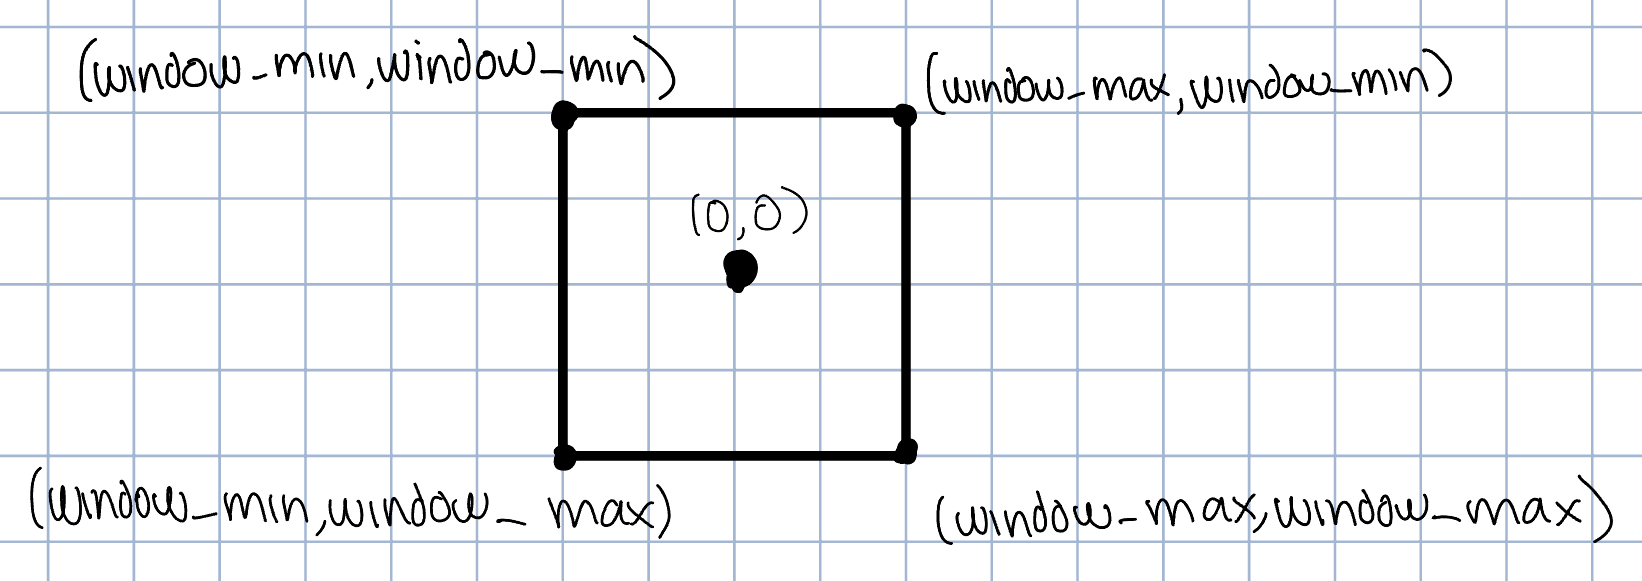 (window_min,window_min)
(window_max,window_min)
(0,0)
(window_min,window_ max)
(window_max,window_max)